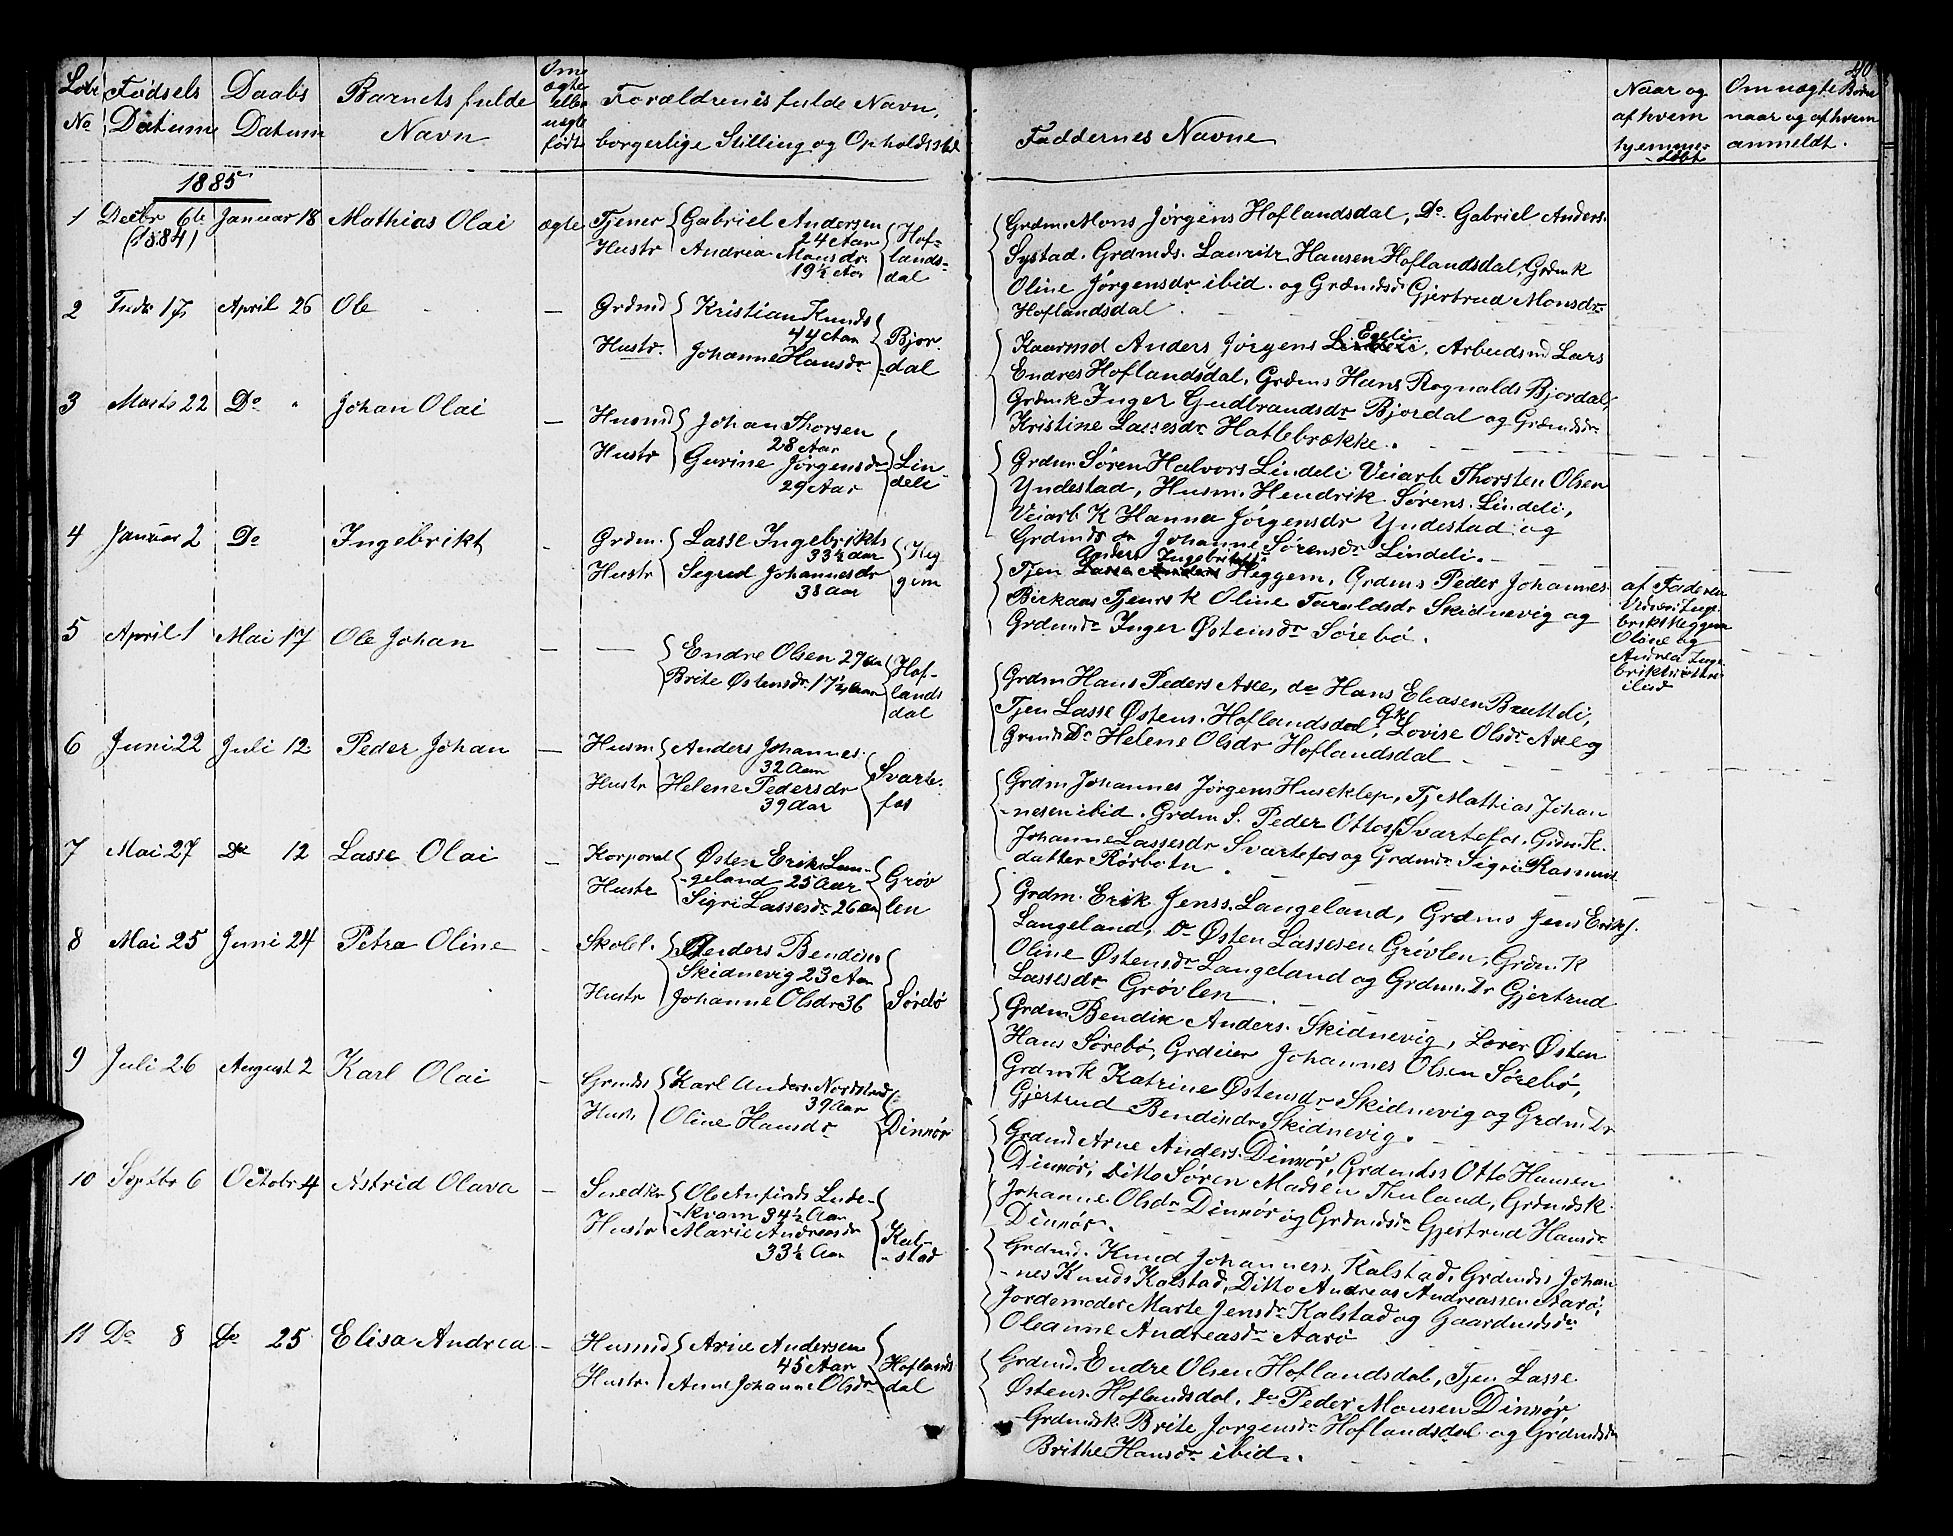 40
Løbe Fødsels Daabs Barnets fulde Om ægte eller uægte født Forældrenes fulde Navn,
No Datum Datum Navn borgerlige Stilling og Opholdssted
Faddernes Navne
Naar og af hvem hjemme-døbt
Om uægte Børn naar og af hvem anmeldt.
1885
1 Decbr 6te (1884) Januar 18 Mathias Olai ægte Tjener Gabriel Andersen
24 Aar
Hustr Andrea Monsdr
19½ Aar
Hof-
lands-
dal
Grdm Mons Jørgens Hoflandsdal, Do. Gabriel Anders.
Systad. Grdmds. Lauritz Hansen Hoflandsdal, Grdmk
Oline Jørgensdr ibid. og Grdmdsdr Gjertrud Monsdr
Hoflandsdal.
2 17 April 26 Ole — Grdmd Kristian Knuds
44 Aar
Hustr. Johanne Hansdr
Bjor-
dal
Kaarmd Anders Jørgens Espeli, Arbeidsmd Lars
Endres Hoflandsdal, Grdms Hans Rognalds Bjordal,
Grdmk Inger Gudbrandsdr Bjordal og Grdmdsdr
Kristine Lassesdr Hatlebrække.
3 Marts 22 Do " Johan Olai — Husmd Johan Thorsen
28 Aar
Hustr Gurine Jørgensdr
29 Aar
Lin
deli
Grdm Søren Halvors Lindeli Veiarb Thorsten Olsen
Yndestad, Husm. Hendrik Sørens. Lindeli,
Veiarb K Hanna Jørgensdr Yndestad og
Grdmdsdr Johanne Sørensdr Lindeli.
4 Januar 2 Do Ingebrikt — Grdm. Lasse Ingebrikts
33½ Aar
Hustr Segrud Johannesdr
38 Aar
Heg
gem
Anders Ingebrikts
Tjen Heggem, Grdms Peder Johannes
Birkaas Tjenrs K Oline Taraldsdr Skidnevig og
Grdmdr Inger Østensdr Sørebø.
af Faderen
brikt Heggem
Oline og
Andrea Inge
ibid
5 April 1 Mai 17 Ole Johan — — Endre Olsen 27 Aar
Brite Østensdr. 17½ Aar
Hof-
lands
dal
Grdm Hans Peders Axe, do Hans Eliasen Brutteli,
Tjen Lasse Østens. Hoflandsdal, Gk Lovise Olsdr Axe og
Grmds Dr Helene Olsdr Hoflandsdal
6 Juni 22 Juli 12 Peder Johan — Husm Anders Johannes.
32 Aar
Hustr Helene Pedersdr
39 Aar
Svarte-
fos
Grdm Johannes Jørgens Huseklep, Tj Mathias Johan
-nesen ibid. Grdm S. Peder Ottos. Svartefos. Grdm K.
Johanne Lassesdr Svartefos og Grdmdr Sigri Rasmus
datter Rørbotn.
7 Mai 27 Do 12 Lasse Olai — Korporal Østen Eriks Lan-
-geland 25 Aar
Hustr Sigri Lassesdr 26 Aar
Grøv
len
Grdm. Erik Jenss. Langeland, Grdms Jens Eriks.
Langeland, Do Østen Lassesen Grøvlen, Grdm K
Oline Østensdr Langeland og Grdmn Dr Gjertrud
Lassesdr Grøvlen
8 Mai 25 Juni 24 Petra Oline — Skoll. Anders Bendiks
Skidnevig 23 Aar
Hustr Johanne Olsdr 36
Sørebø
Grdm Bendix Anders. Skidnevig, Lærer Østen
Hans Sørebø, Grdeier Johannes Olsen Sørebø,
Grdmk Katrine Østensdr Skidnevig og Grdm Dr
Gjertrud Bendixdr Skidnevig.
9 Juli 26 August 2 Karl Olai — Grmds Karl Anders. Nordstrand
39 Aar
Hustr Oline Hansdr
Dinnør
Grdmd Arne Anders. Dinnør, Grdmds Otto Hansen
Dinnør, Ditto Søren Madsen Thuland, Grdmdsk
Johanne Olsdr Dinnør og Grdmdsdr Gjertrud Hansdr
Dinnør.
10 Septbr 6 Octobr 4 Astrid Olava — Snedker Ole Anfinds Inde-
-kvam 34½ Aar
Hustr Marie Andreasdr
33½ Aar
Kal-
-stad
Grdmd. Knud Johanness. Kalstad, Grdmdss Johan
-nes Knuds Kalstad, Ditto Andreas Andreassen Aarø,
Jordemoder Marte Jensdr Kalstad og Gaardmdsdr
Oleanne Andreasdr Aarø
11 Do 8 Do 25 Elisa Andrea — Husmd Arne Andersen
45 Aar
Hustr. Anne Johanne Olsdr
Hoflands
dal
Grdmd. Endre Olsen Hoflandsdal, Tjen Lasse
Østens. Hoflandsdal. Do Peder Monsen Dinnør,
Grdmdsk Brite Jørgensdr Hoflandsdal og Grdmdsdr
Brithe Hansdr ibid.